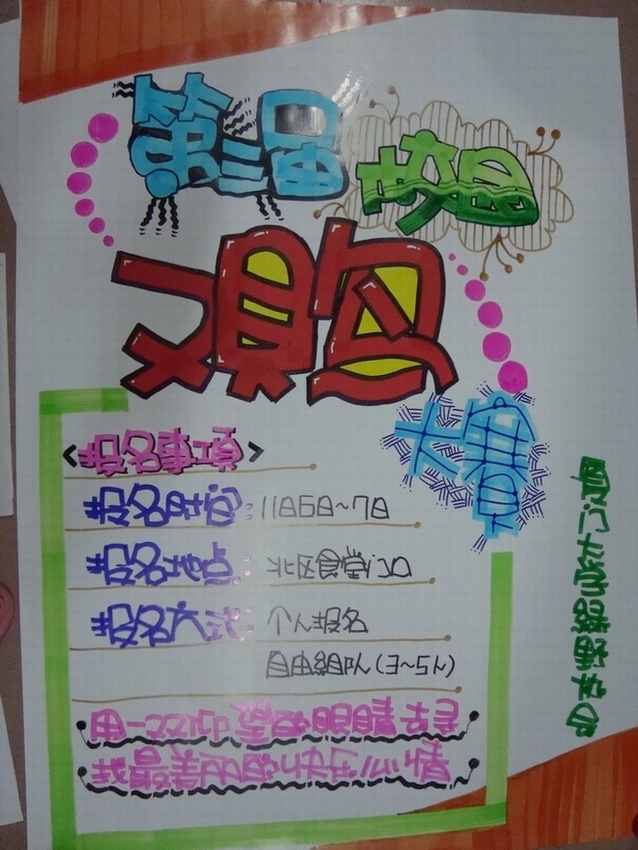 第三届
校园
观鸟
大赛
<报名事项>
报名时间：11月6日~7日
报名地点：北区食堂门口
报名方式：个人报名
自由组队(3~5人)
用一双仰望的眼睛去寻
找最美丽的快乐心情